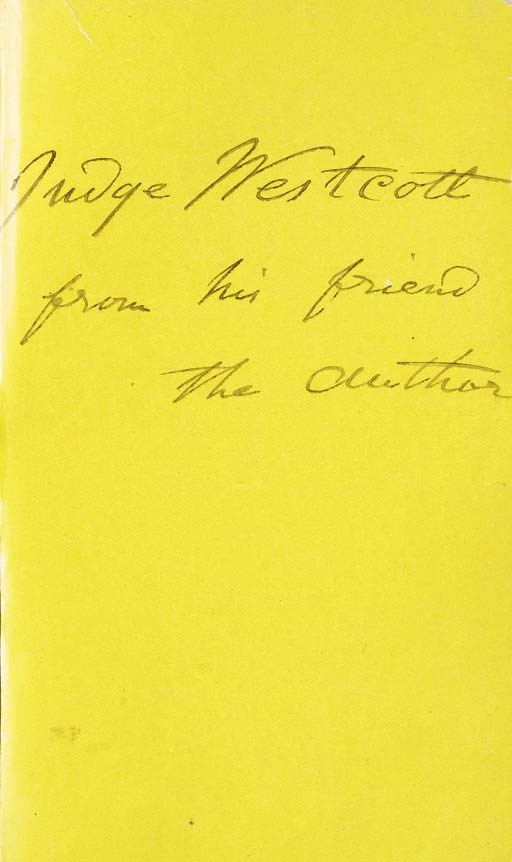 Judge Westcott
from his friend
the author